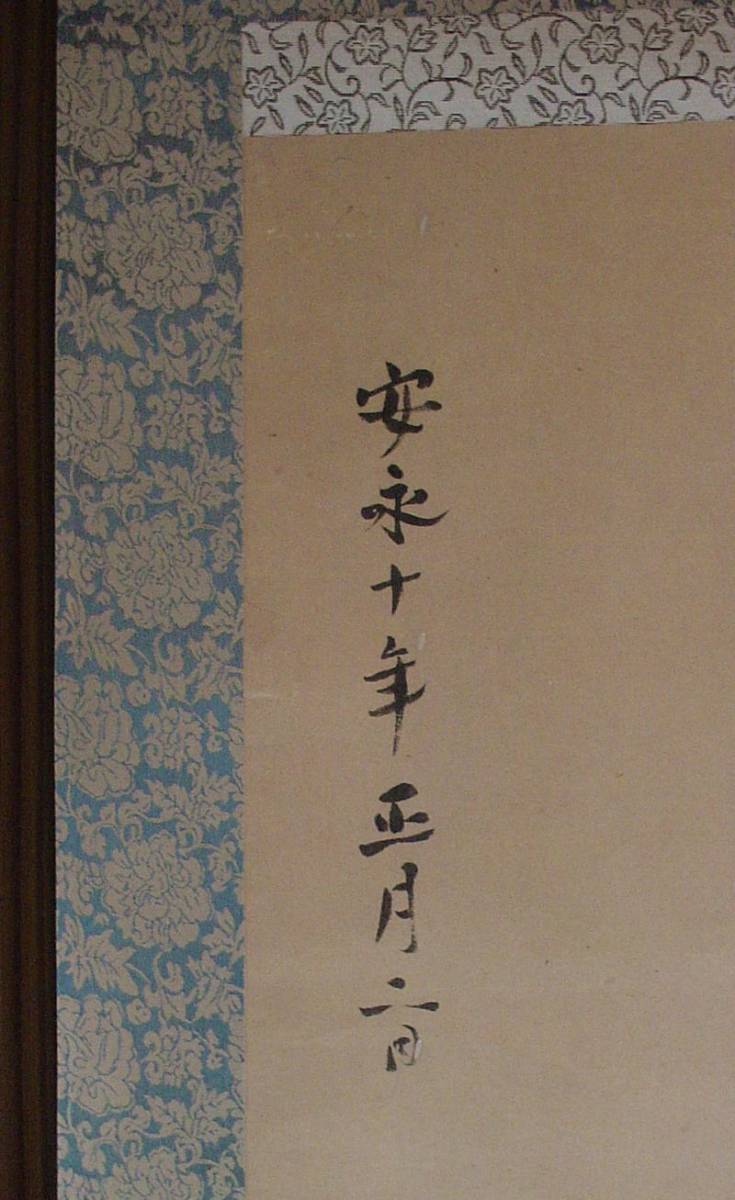 安永十年正月二日